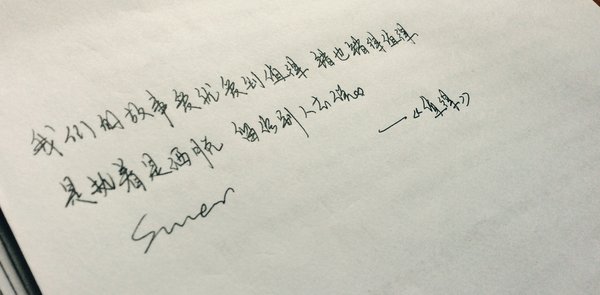 我们的故事爱就爱到值得 错也错得值得
是执着是洒脱 留给别人去说
——《值得》